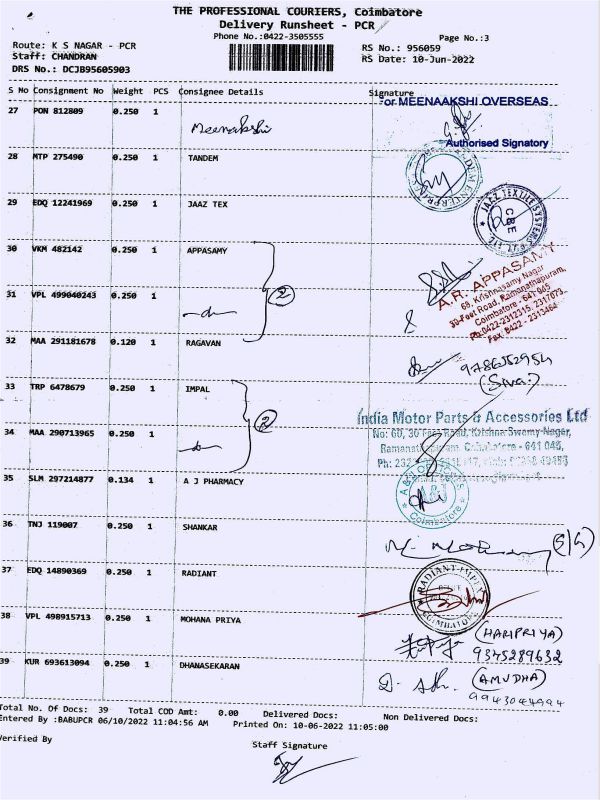 THE PROFESSIONAL COURIERS, Coimbatore
Delivery Runsheet - PCR
Phone No.:0422-3505555
Page No.:3
Route: K S NAGAR - PCR
RS No.: 956059
Staff: CHANDRAN
RS Date: 10-Jun-2022
DRS No.: DCJB95605903
S No Consignment No Weight PCS Consignee Details Signature
For MEENAAKSHI OVERSEAS
27 PON 812809 0.250 1
Meenakshi
Authorised Signatory
28 MTP 275490 0.250 1 TANDEM
29 EDQ 12241969 0.250 1 JAAZ TEX
JAAZ TEXTILE SYSTEMS PVT. LTD.
CBE
30 VKM 482142 0.250 1 APPASAMY
2
A.R. APPASAMY
68, Krishnasamy Nagar
30-Feet Road, Ramanathapuram,
Coimbatore - 641 045
Ph: 0422-2312315, 2317073
Fax: 0422 - 2313464
31 VPL 499040243 0.250 1
32 MAA 291181678 0.120 1 RAGAVAN
9786552954
(Siva)
33 TRP 6478679 0.250 1 IMPAL
2
India Motor Parts & Accessories Ltd
No: 60, 30 Feet Road, Krishna Swamy Nager,
Ramanathapuram, Coimbatore - 641 045,
34 MAA 290713965 0.250 1
35 SLM 297214877 0.134 1 A J PHARMACY
Coimbatore
36 TNJ 119007 0.250 1 SHANKAR
(S/G)
37 EDQ 14890369 0.250 1 RADIANT
RADIANT IMPEX
COIMBATORE
38 VPL 498915713 0.250 1 MOHANA PRIYA
(HARIPRIYA)
9345289632
39 KUR 693613094 0.250 1 DHANASEKARAN
(AMUDHA)
9943044994
Total No. Of Docs: 39 Total COD Amt: 0.00 Delivered Docs: Non Delivered Docs:
Entered By :BABUPCR 06/10/2022 11:04:56 AM Printed On: 10-06-2022 11:05:00
Verified By
Staff Signature